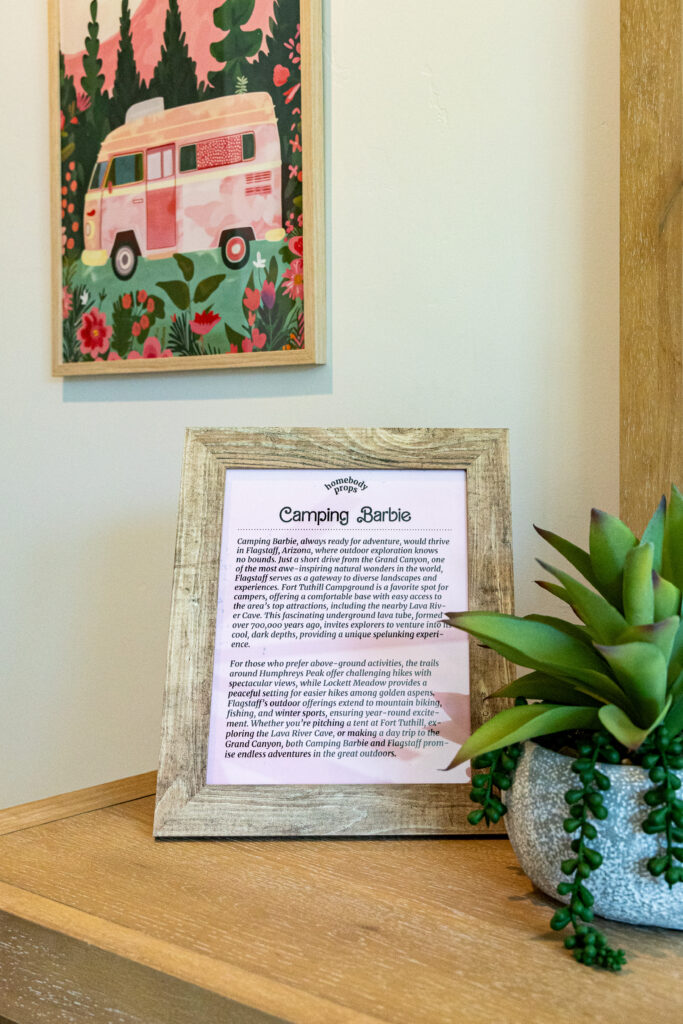 homebody
props
Camping Barbie
Camping Barbie, always ready for adventure, would thrive
in Flagstaff, Arizona, where outdoor exploration knows
no bounds. Just a short drive from the Grand Canyon, one
of the most awe-inspiring natural wonders in the world,
Flagstaff serves as a gateway to diverse landscapes and
experiences. Fort Tuthill Campground is a favorite spot for
campers, offering a comfortable base with easy access to
the area's top attractions, including the nearby Lava Riv-
er Cave. This fascinating underground lava tube, formed
over 700,000 years ago, invites explorers to venture into its
cool, dark depths, providing a unique spelunking experi-
ence.
For those who prefer above-ground activities, the trails
around Humphreys Peak offer challenging hikes with
spectacular views, while Lockett Meadow provides a
peaceful setting for easier hikes among golden aspens.
Flagstaff's outdoor offerings extend to mountain biking,
fishing, and winter sports, ensuring year-round excite-
ment. Whether you're pitching a tent at Fort Tuthill, ex-
ploring the Lava River Cave, or making a day trip to the
Grand Canyon, both Camping Barbie and Flagstaff prom-
ise endless adventures in the great outdoors.